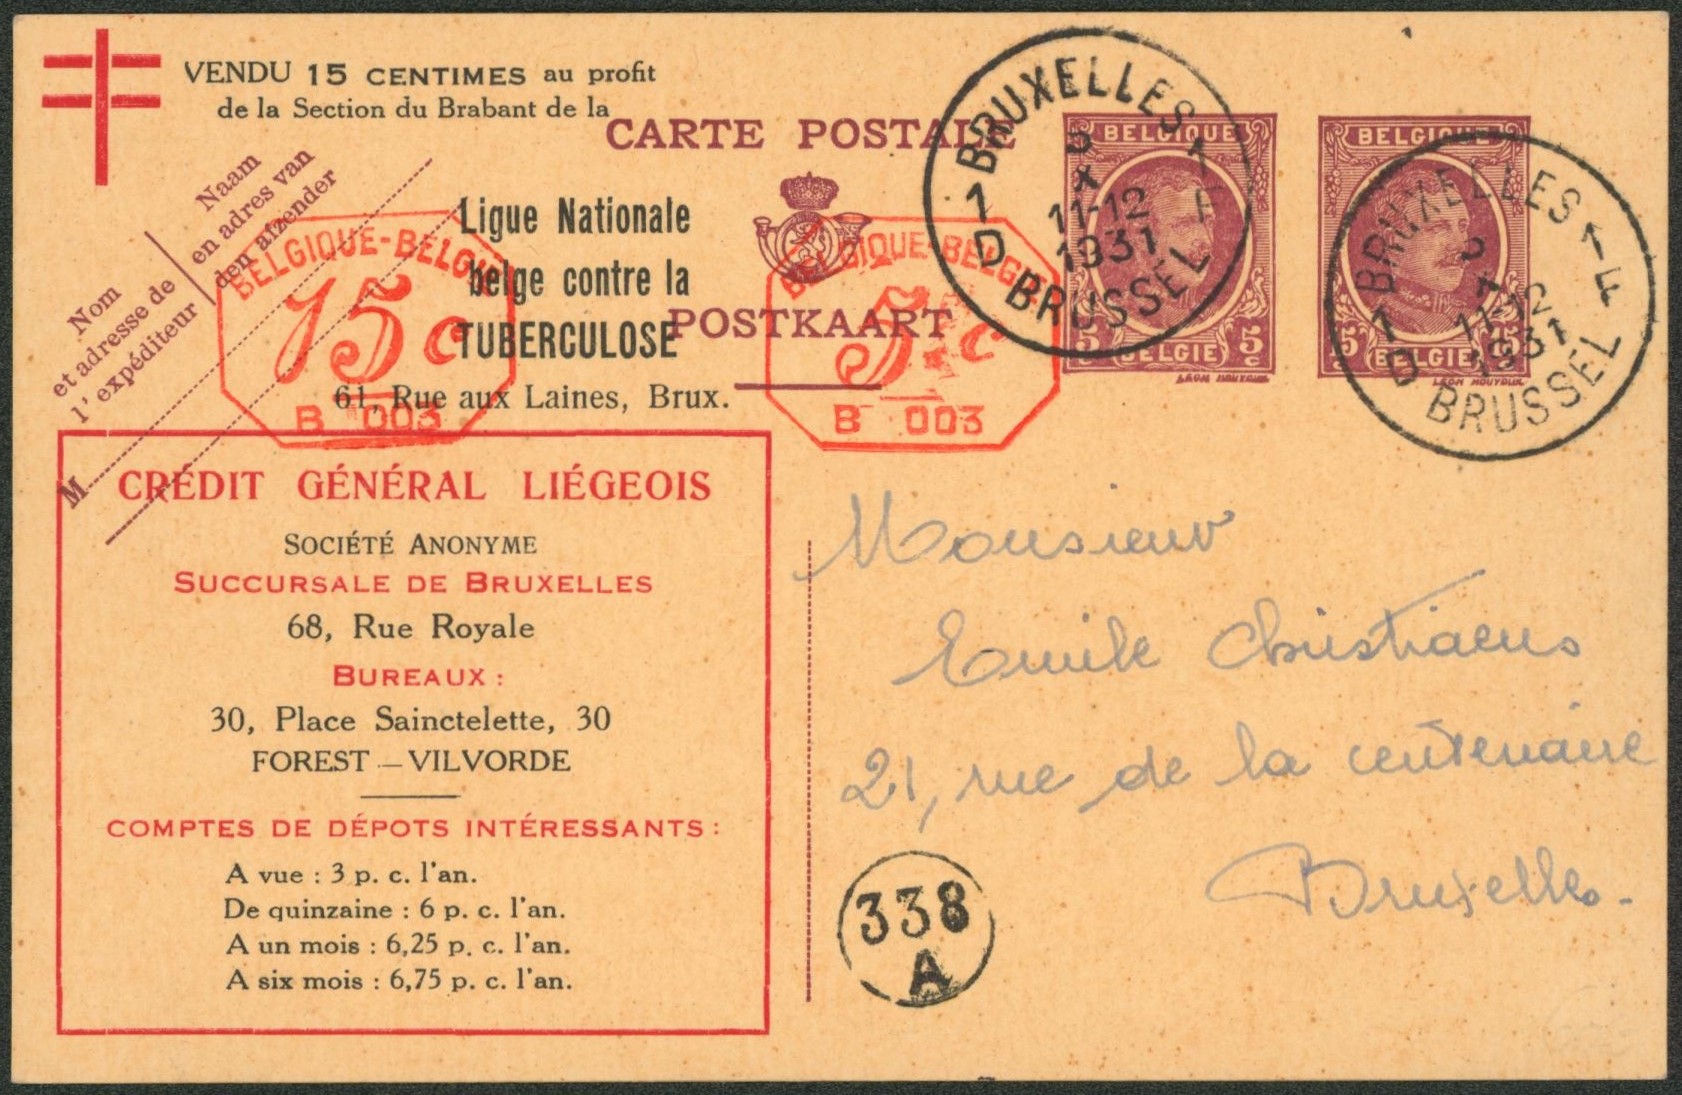 VENDU 15 CENTIMES au profit
de la Section du Brabant de la
CARTE POSTALE
Ligue Nationale
belge contre la
TUBERCULOSE
61, Rue aux Laines, Brux.
POSTKAART
Naam
en adres van
den afzender
Nom
et adresse de
l'expéditeur
M
BELGIQUE-BELGIE
15 c
B 003
BELGIQUE-BELGIE
5 c
B 003
BELGIQUE
5 c 5 c
BELGIE
LEON HOUYOUX
BELGIQUE
5 5
BELGIE
LEON HOUYOUX
BRUXELLES 1
5
X
11-12
1931
1 D BRUSSEL F
BRUXELLES 1
11-12
1931
1 D BRUSSEL F
CRÉDIT GÉNÉRAL LIÉGEOIS
SOCIÉTÉ ANONYME
SUCCURSALE DE BRUXELLES
68, Rue Royale
BUREAUX :
30, Place Sainctelette, 30
FOREST — VILVORDE
COMPTES DE DÉPOTS INTÉRESSANTS :
A vue : 3 p. c. l'an.
De quinzaine : 6 p. c. l'an.
A un mois : 6,25 p. c. l'an.
A six mois : 6,75 p. c. l'an.
Monsieur
Emile Christiaens
21, rue de la centenaire
Bruxelles.
338
A